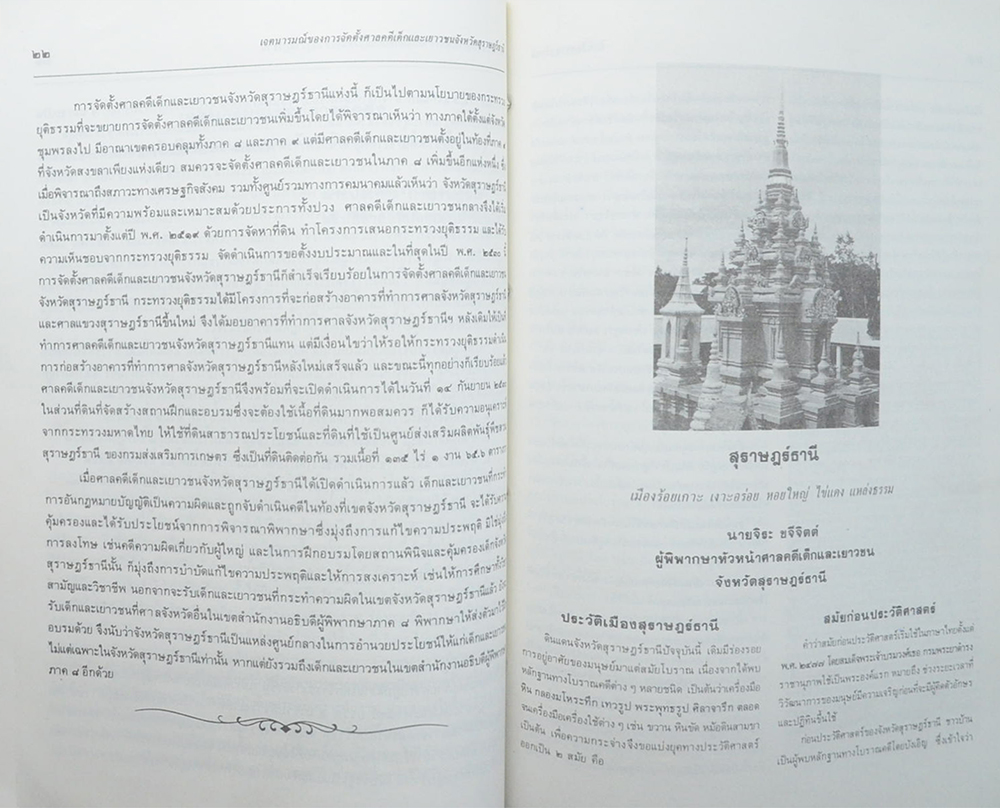 ๒๒
เจตนารมณ์ของการจัดตั้งศาลคดีเด็กและเยาวชนจังหวัดสุราษฎร์ธานี
การจัดตั้งศาลคดีเด็กและเยาวชนจังหวัดสุราษฎร์ธานีแห่งนี้ ก็เป็นไปตามนโยบายของกระทรวง
ยุติธรรมที่จะขยายการจัดตั้งศาลคดีเด็กและเยาวชนเพิ่มขึ้นโดยได้พิจารณาเห็นว่า ทางภาคใต้ตั้งแต่จังหวัด
ชุมพรลงไป มีอาณาเขตครอบคลุมทั้งภาค ๘ และภาค ๙ แต่มีศาลคดีเด็กและเยาวชนตั้งอยู่ในท้องที่ภาค ๙
ที่จังหวัดสงขลาเพียงแห่งเดียว สมควรจะจัดตั้งศาลคดีเด็กและเยาวชนในภาค ๘ เพิ่มขึ้นอีกแห่งหนึ่ง
เมื่อพิจารณาถึงสภาวะทางเศรษฐกิจสังคม รวมทั้งศูนย์รวมทางการคมนาคมแล้วเห็นว่า จังหวัดสุราษฎร์ธานี
เป็นจังหวัดที่มีความพร้อมและเหมาะสมด้วยประการทั้งปวง ศาลคดีเด็กและเยาวชนกลางจึงได้เริ่ม
ดำเนินการมาตั้งแต่ปี พ.ศ. ๒๕๑๙ ด้วยการจัดหาที่ดิน ทำโครงการเสนอกระทรวงยุติธรรม และได้รับ
ความเห็นชอบจากกระทรวงยุติธรรม จัดดำเนินการขอตั้งงบประมาณและในที่สุดในปี พ.ศ. ๒๕๓๐ นี้
การจัดตั้งศาลคดีเด็กและเยาวชนจังหวัดสุราษฎร์ธานีก็สำเร็จเรียบร้อยในการจัดตั้งศาลคดีเด็กและเยาวชน
จังหวัดสุราษฎร์ธานี กระทรวงยุติธรรมได้มีโครงการที่จะก่อสร้างอาคารที่ทำการศาลจังหวัดสุราษฎร์ธานี
และศาลแขวงสุราษฎร์ธานีขึ้นใหม่ จึงได้มอบอาคารที่ทำการศาลจังหวัดสุราษฎร์ธานีฯ หลังเดิมให้เป็นที่
ทำการศาลคดีเด็กและเยาวชนจังหวัดสุราษฎร์ธานีแทน แต่มีเงื่อนไขว่าให้รอให้กระทรวงยุติธรรมดำเนิน
การก่อสร้างอาคารที่ทำการศาลจังหวัดสุราษฎร์ธานีหลังใหม่เสร็จแล้ว และขณะนี้ทุกอย่างก็เรียบร้อยแล้ว
ศาลคดีเด็กและเยาวชนจังหวัดสุราษฎร์ธานีจึงพร้อมที่จะเปิดดำเนินการได้ในวันที่ ๑๔ กันยายน
ในส่วนที่ดินที่จัดสร้างสถานฝึกและอบรมซึ่งจะต้องใช้เนื้อที่ดินมากพอสมควร ก็ได้รับความอนุเคราะห์
จากกระทรวงมหาดไทย ให้ใช้ที่ดินสาธารณประโยชน์และที่ดินที่ใช้เป็นศูนย์ส่งเสริมผลิตพันธุ์พืชสวน
สุราษฎร์ธานี ของกรมส่งเสริมการเกษตร ซึ่งเป็นที่ดินติดต่อกัน รวมเนื้อที่ ๑๓๕ ไร่ ๑ งาน ๖๕.๖ ตารางวา
เมื่อศาลคดีเด็กและเยาวชนจังหวัดสุราษฎร์ธานีได้เปิดดำเนินการแล้ว เด็กและเยาวชนที่กระทำ
การอันกฎหมายบัญญัติเป็นความผิดและถูกจับดำเนินคดีในท้องที่เขตจังหวัดสุราษฎร์ธานี จะได้รับความ
คุ้มครองและได้รับประโยชน์จากการพิจารณาพิพากษาซึ่งมุ่งถึงการแก้ไขความประพฤติ มิใช่มุ่ง
การลงโทษ เช่นคดีความผิดเกี่ยวกับผู้ใหญ่ และในการฝึกอบรมโดยสถานพินิจและคุ้มครองเด็กจังหวัด
สุราษฎร์ธานีนั้น ก็มุ่งถึงการบำบัดแก้ไขความประพฤติและให้การสงเคราะห์ เช่นให้การศึกษาทั้ง
สามัญและวิชาชีพ นอกจากจะรับเด็กและเยาวชนที่กระทำความผิดในเขตจังหวัดสุราษฎร์ธานีแล้ว ยัง
รับเด็กและเยาวชนที่ศาลจังหวัดอื่นในเขตสำนักงานอธิบดีผู้พิพากษาภาค ๘ พิพากษาให้ส่งตัวมาฝึก
อบรมด้วย จึงนับว่าจังหวัดสุราษฎร์ธานีเป็นแหล่งศูนย์กลางในการอำนวยประโยชน์ให้แก่เด็กและเยาวชน
ไม่แต่เฉพาะในจังหวัดสุราษฎร์ธานีเท่านั้น หากแต่ยังรวมถึงเด็กและเยาวชนในเขตสำนักงานอธิบดีผู้พิพากษา
ภาค ๘ อีกด้วย
สุราษฎร์ธานี
เมืองร้อยเกาะ เงาะอร่อย หอยใหญ่ ไข่แดง แหล่งธรรม
นายจิระ ขจีจิตต์
ผู้พิพากษาหัวหน้าศาลคดีเด็กและเยาวชน
จังหวัดสุราษฎร์ธานี
ประวัติเมืองสุราษฎร์ธานี
ดินแดนจังหวัดสุราษฎร์ธานีปัจจุบันนี้ เดิมมีร่องรอย
การอยู่อาศัยของมนุษย์มาแต่สมัยโบราณ เนื่องจากได้พบ
หลักฐานทางโบราณคดีต่าง ๆ หลายชนิด เป็นต้นว่าเครื่องมือ
หิน กลองมโหระทึก เทวรูป พระพุทธรูป ศิลาจารึก ตลอด
จนเครื่องมือเครื่องใช้ต่าง ๆ เช่น ขวาน หินขัด หม้อดินสามขา
เป็นต้น เพื่อความกระจ่างจึงขอแบ่งยุคทางประวัติศาสตร์
ออกเป็น ๒ สมัย คือ
สมัยก่อนประวัติศาสตร์
คำว่าสมัยก่อนประวัติศาสตร์เริ่มใช้ในภาษาไทยตั้งแต่
พ.ศ. ๒๔๗๗ โดยสมเด็จพระเจ้าบรมวงศ์เธอ กรมพระยาดำรง
ราชานุภาพใช้เป็นพระองค์แรก หมายถึง ช่วงระยะเวลาที่
วิวัฒนาการของมนุษย์มีความเจริญก่อนที่จะมีผู้คิดตัวอักษร
และปฏิทินขึ้นใช้
ก่อนประวัติศาสตร์ของจังหวัดสุราษฎร์ธานี ชาวบ้าน
เป็นผู้พบหลักฐานทางโบราณคดีโดยบังเอิญ ซึ่งเข้าใจว่า